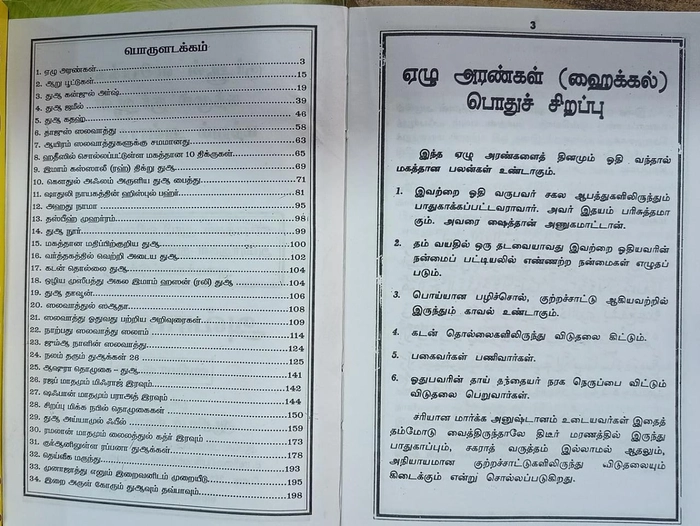 பொருளடக்கம்
1. ஏழு அரண்கள்.....3
2. ஆறு பூட்டுகள்.....15
3. துஆ கன்ஜுல் அர்ஷ்.....19
4. துஆ ஜமீல்.....39
5. துஆ கதஹ்.....46
6. தாஜுஸ் ஸலவாத்து.....58
7. ஆயிரம் ஸலவாத்துகளுக்கு சமமானது.....63
8. ஹதீஸில் சொல்லப்பட்டுள்ள மகத்தான 10 திக்ருகள்.....65
9. இமாம் கஸ்ஸாலீ (ரஹ்) திக்ரு துஆ.....69
10. கௌதுல் அஃலம் அருளிய துஆ பைத்து.....71
11. ஷாதுலி நாயகத்தின் ஹிஸ்புல் பஹ்ர்.....81
12. அஹது நாமா.....95
13. தஸ்பீஹ் முஹர்ரம்.....98
14. துஆ நூர்.....99
15. மகத்தான மதிப்பிற்குரிய துஆ.....100
16. வர்த்தகத்தில் வெற்றி அடைய துஆ.....102
17. கடன் தொல்லை துஆ.....104
18. ஒழிய முஸீபத்து அகல இமாம் ஹஸன் (ரலி) துஆ.....104
19. துஆ தாஊன்.....106
20. ஸலவாத்துல் ஸஆதா.....108
21. ஸலவாத்து ஓதுவது பற்றிய அறிவுரைகள்.....109
22. நாற்பது ஸலவாத்து ஸலாம்.....114
23. ஜும்ஆ நாளின் ஸலவாத்து.....124
24. நலம் தரும் துஆக்கள் 26.....125
25. ஆஷுரா தொழுகை - துஆ.....141
26. ரஜப் மாதமும் மிஃராஜ் இரவும்.....142
27. ஷஃபான் மாதமும் பராஅத் இரவும்.....144
28. சிறப்பு மிக்க நபில் தொழுகைகள்.....150
29. துஆ அய்யாமுல் ஃபீல்.....159
30. ரமலான் மாதமும் லைலத்துல் கத்ர் இரவும்.....173
31. குர்ஆனிலுள்ள ரப்பனா துஆக்கள்.....178
32. தெய்வீக மருந்து.....193
33. முனாஜாத்து எனும் இறைவனிடம் முறையீடு.....195
34. இறை அருள் கோரும் துஆவும் தவ்பாவும்.....198
3
ஏழு அரண்கள் (ஹைக்கல்)
பொதுச் சிறப்பு
இந்த ஏழு அரண்களைத் தினமும் ஓதி வந்தால்
மகத்தான பலன்கள் உண்டாகும்.
1. இவற்றை ஓதி வருபவர் சகல ஆபத்துகளிலிருந்தும்
பாதுகாக்கப்பட்டவராவார். அவர் இதயம் பரிசுத்தமா
கும். அவரை ஷைத்தான் அணுகமாட்டான்.
2. தம் வயதில் ஒரு தடவையாவது இவற்றை ஓதியவரின்
நன்மைப் பட்டியலில் எண்ணற்ற நன்மைகள் எழுதப்
படும்.
3. பொய்யான பழிச்சொல், குற்றச்சாட்டு ஆகியவற்றில்
இருந்தும் காவல் உண்டாகும்.
4. கடன் தொல்லைகளிலிருந்து விடுதலை கிட்டும்.
5. பகைவர்கள் பணிவார்கள்.
6. ஓதுபவரின் தாய் தந்தையர் நரக நெருப்பை விட்டும்
விடுதலை பெறுவார்கள்.
சரியான மார்க்க அனுஷ்டானம் உடையவர்கள் இதைத்
தம்மோடு வைத்திருந்தாலே திடீர் மரணத்தில் இருந்து
பாதுகாப்பும், சகராத் வருத்தம் இல்லாமல் ஆதலும்,
அநியாயமான குற்றச்சாட்டுகளிலிருந்து விடுதலையும்
கிடைக்கும் என்று சொல்லப்படுகிறது.